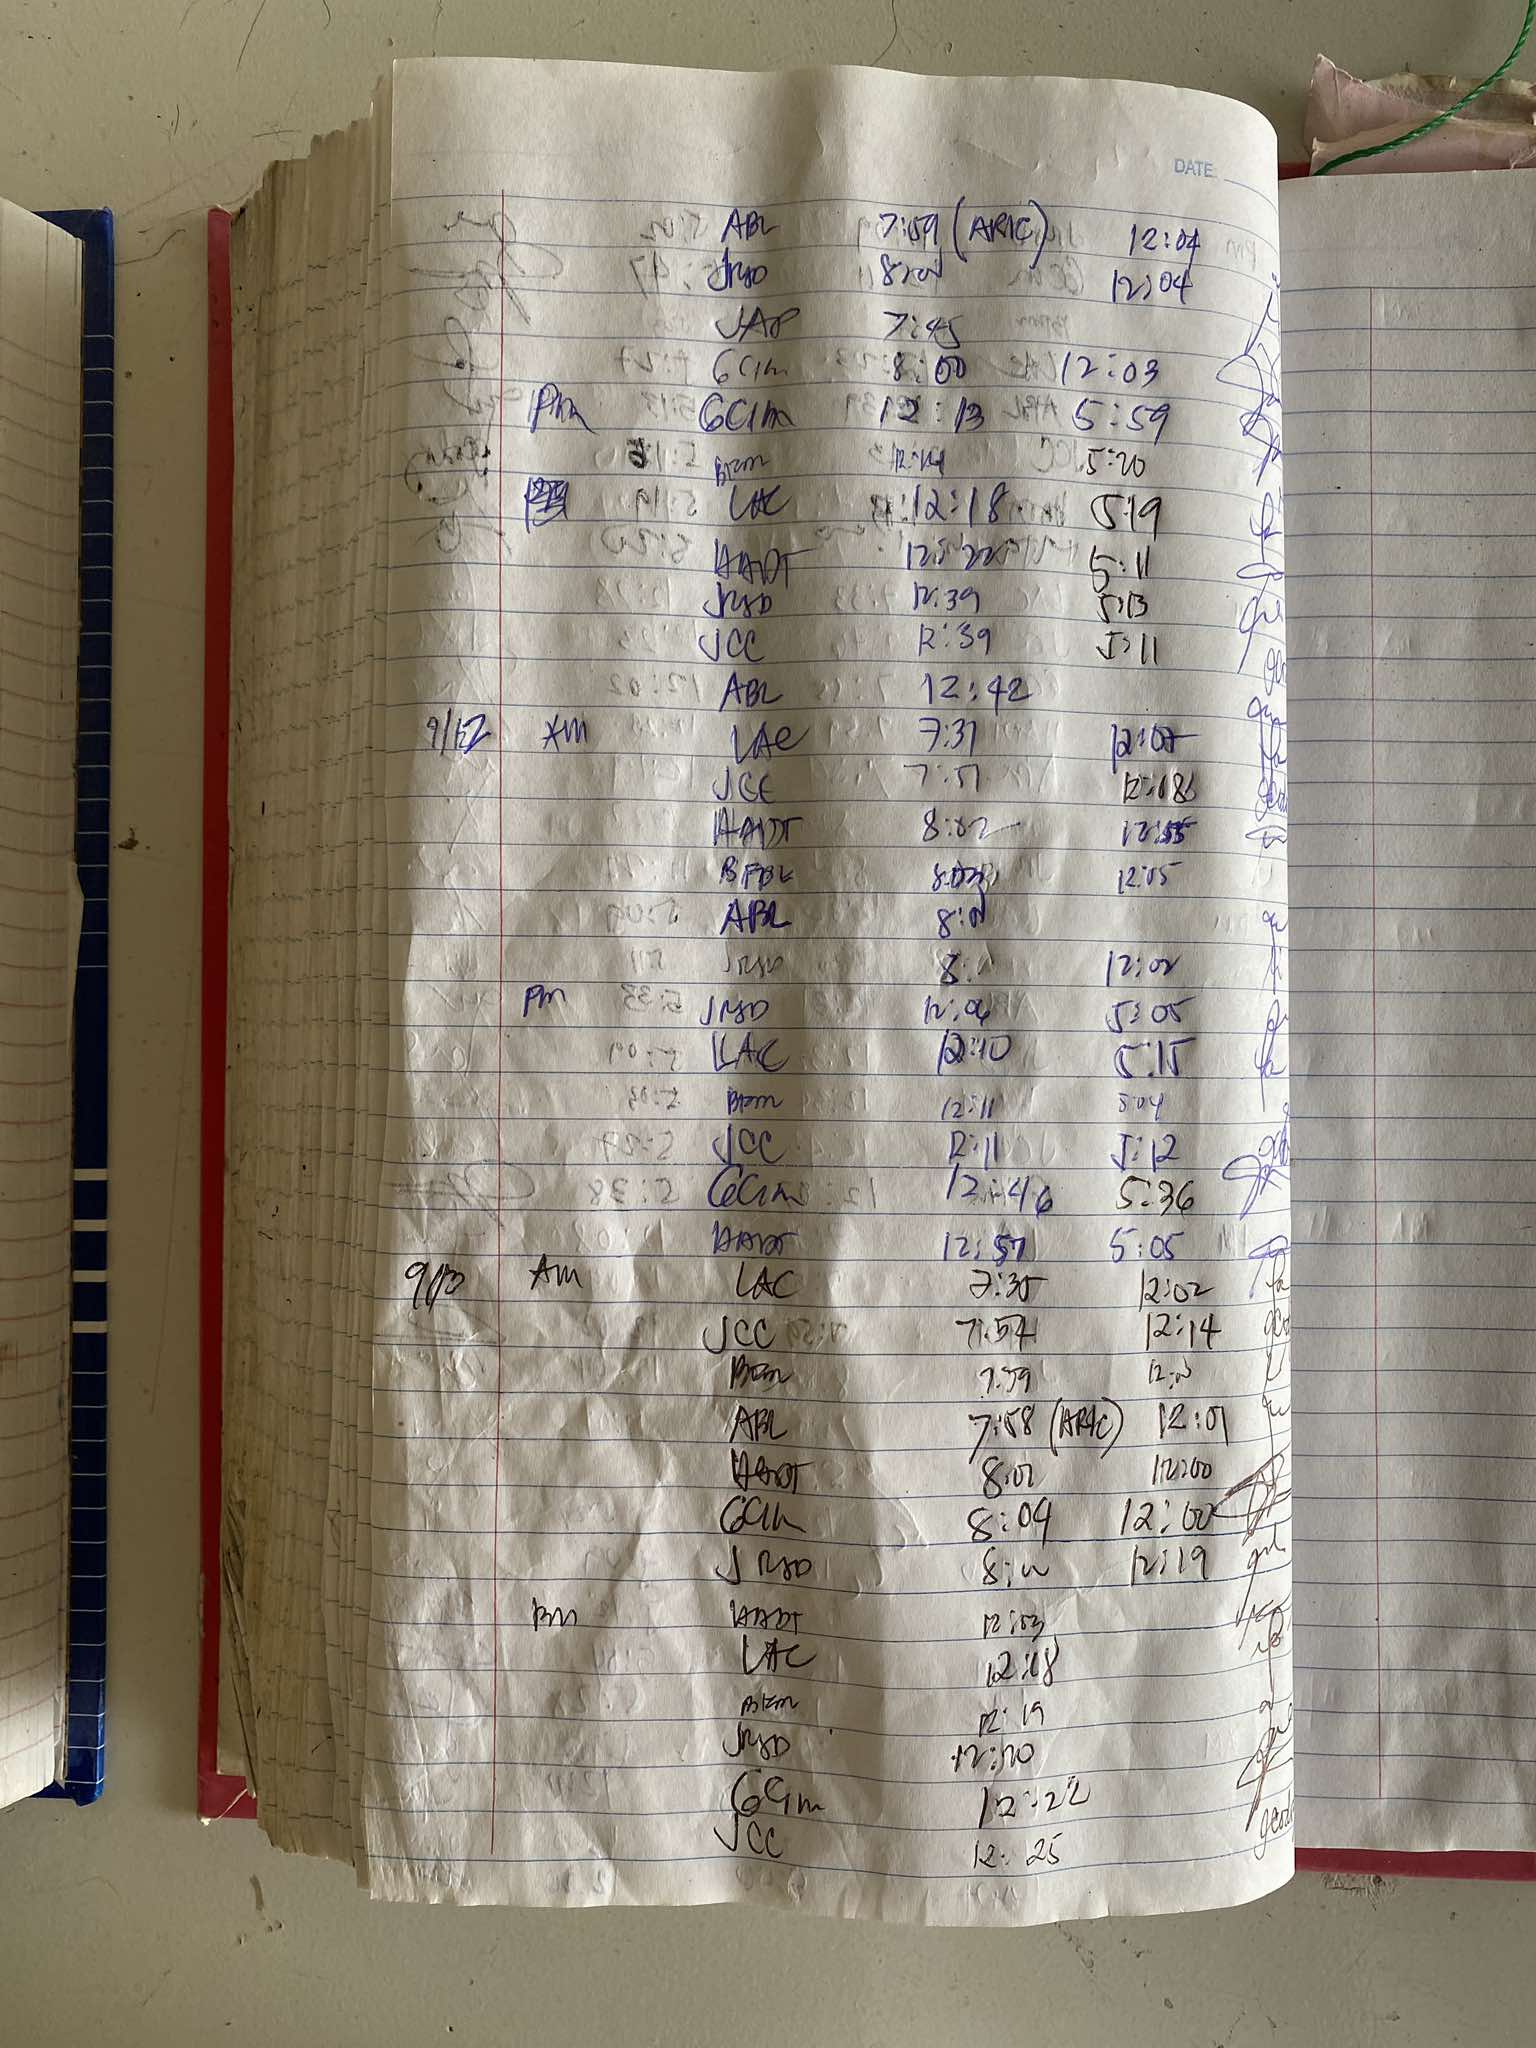 DATE
ABL 7:59 (ARIC) 12:04
JRSD 12:04
JAP 7:45
GCIM 8:00 12:03
PM GCIM 12:13 5:59
BFM 12:14 5:20
LAC 12:18 5:19
HADT 12:22 5:11
JRSD 12:39 5:13
JCC 12:39 5:11
ABL 12:42
9/12 AM LAC 7:31 12:07
JCC 7:51 12:18
HADT 8:02
BFBL 8:03 12:05
ABL
JRSD 12:02
PM JRSD 12:06 5:05
LAC 12:10 5:15
BFM 12:11 5:04
JCC 12:11 5:12
GCIM 12:46 5:36
HADT 12:57 5:05
9/13 AM LAC 7:35 12:02
JCC 7:54 12:14
BFM 7:59
ABL 7:58 (ARIC) 12:01
HADT 8:02 12:00
GCIM 8:04 12:00
JRSD 12:19
PM HADT 12:03
LAC 12:18
BFM 12:19
JRSD 12:20
GCIM 12:22
JCC 12:25